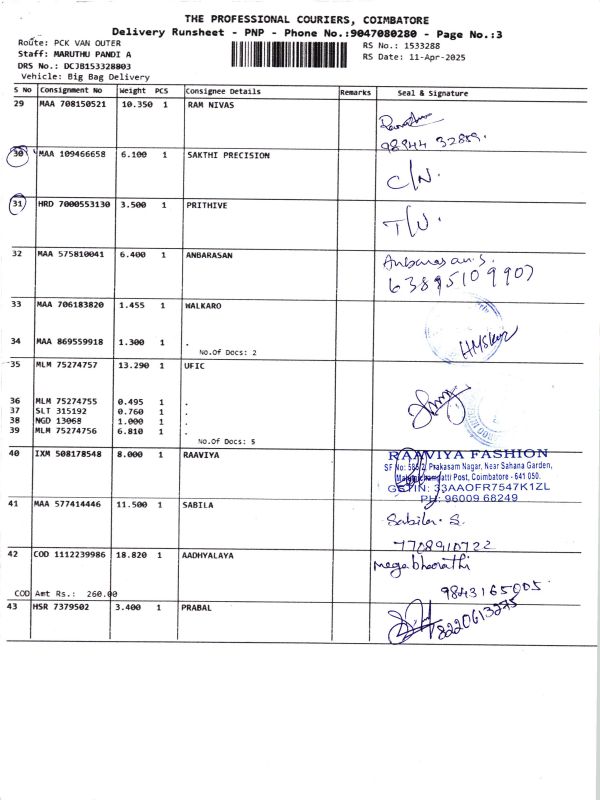 THE PROFESSIONAL COURIERS, COIMBATORE
Delivery Runsheet - PNP - Phone No.:9047080280 - Page No.:3
Route: PCK VAN OUTER RS No.: 1533288
Staff: MARUTHU PANDI A RS Date: 11-Apr-2025
DRS No.: DCJB153328803
Vehicle: Big Bag Delivery
S No Consignment No Weight PCS Consignee Details Remarks Seal & Signature
29 MAA 708150521 10.350 1 RAM NIVAS
98944 32859.
30 MAA 109466658 6.100 1 SAKTHI PRECISION
C/N.
31 HRD 7000553130 3.500 1 PRITHIVE
32 MAA 575810041 6.400 1 ANBARASAN
Anbarasan.S.
63895109907
33 MAA 706183820 1.455 1 WALKARO
34 MAA 869559918 1.300 1 .
No.Of Docs: 2
35 MLM 75274757 13.290 1 UFIC
36 MLM 75274755 0.495 1 .
37 SLT 315192 0.760 1 .
38 NGD 13068 1.000 1 .
39 MLM 75274756 6.810 1 .
No.Of Docs: 5
40 IXM 508178548 8.000 1 RAAVIYA
RAAVIYA FASHION
SF No: 585/2, Prakasam Nagar, Near Sahana Garden,
Post, Coimbatore - 641 050.
GSTIN: 33AAOFR7547K1ZL
PH: 96009 68249
41 MAA 577414446 11.500 1 SABILA
Sabila. S.
7708910722
42 COD 1112239986 18.820 1 AADHYALAYA
Megabharathi
9843165005
COD Amt Rs.: 260.00
43 HSR 7379502 3.400 1 PRABAL
8220613275